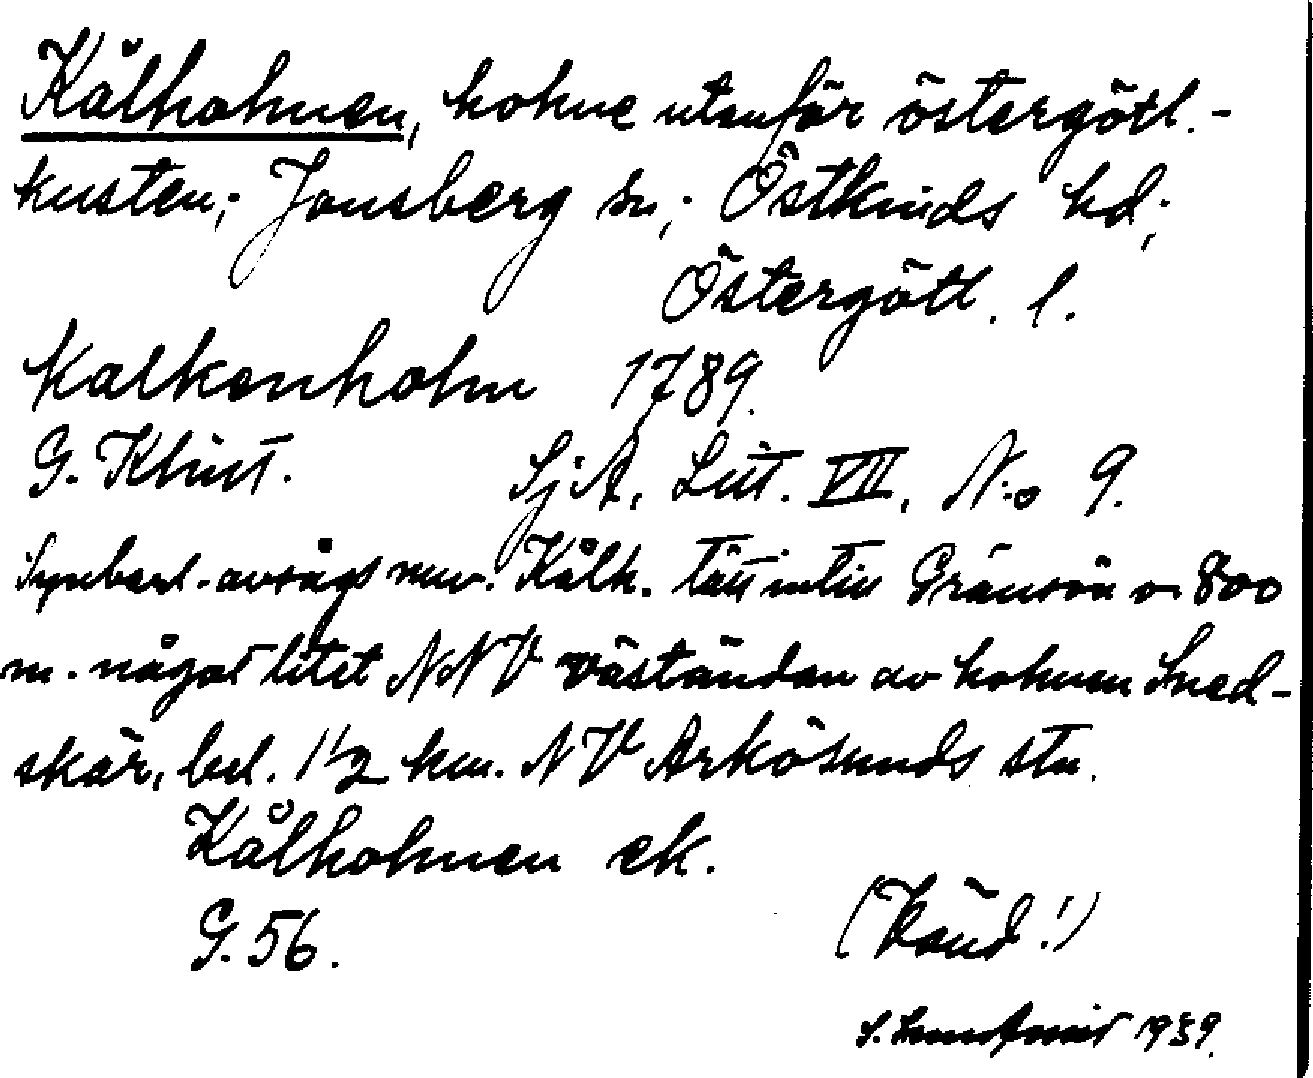 Kålholmen, holme utanför östergötl.-
kusten; Jonsberg sn; Östkinds hd;
Östergötl. l.
Kalkenholm 1789.
G. Klint. SjA, Litt. VII, N:o 9.
Synbarl. avsågs nuv. Kålh. tätt intill Gränsön o. 800
m. något litet NNV väständan av holmen Sned-
skär, bel. 1 1/2 km. NV Arkösunds stn.
Kålholmen ek.
G. 56.
(Känd!)
S. 1939.